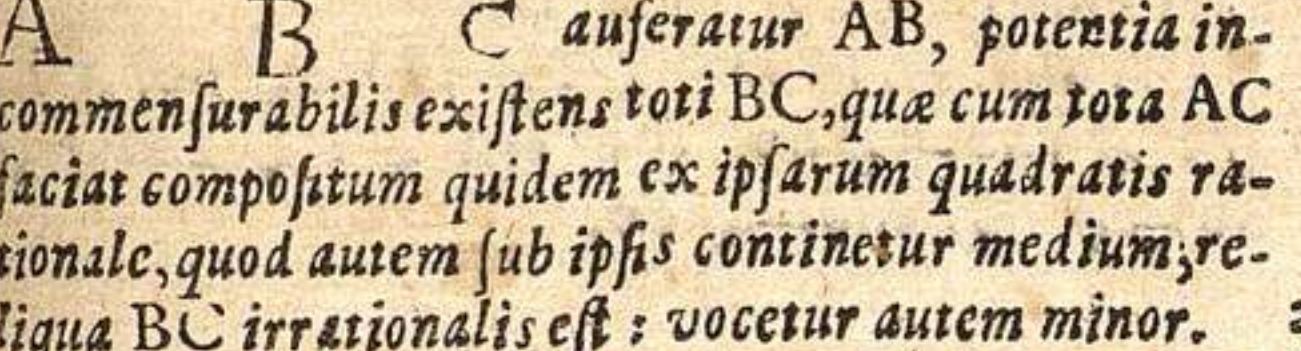 A B C auſeratur AB, potentia in-
commenſurabilis exiſtens toti BC, quæ cum tota AC
faciat compoſitum quidem ex ipſarum quadratis ra-
tionale, quod autem ſub ipſis continetur medium; re-
liqua BC irrationalis eſt : vocetur autem minor.